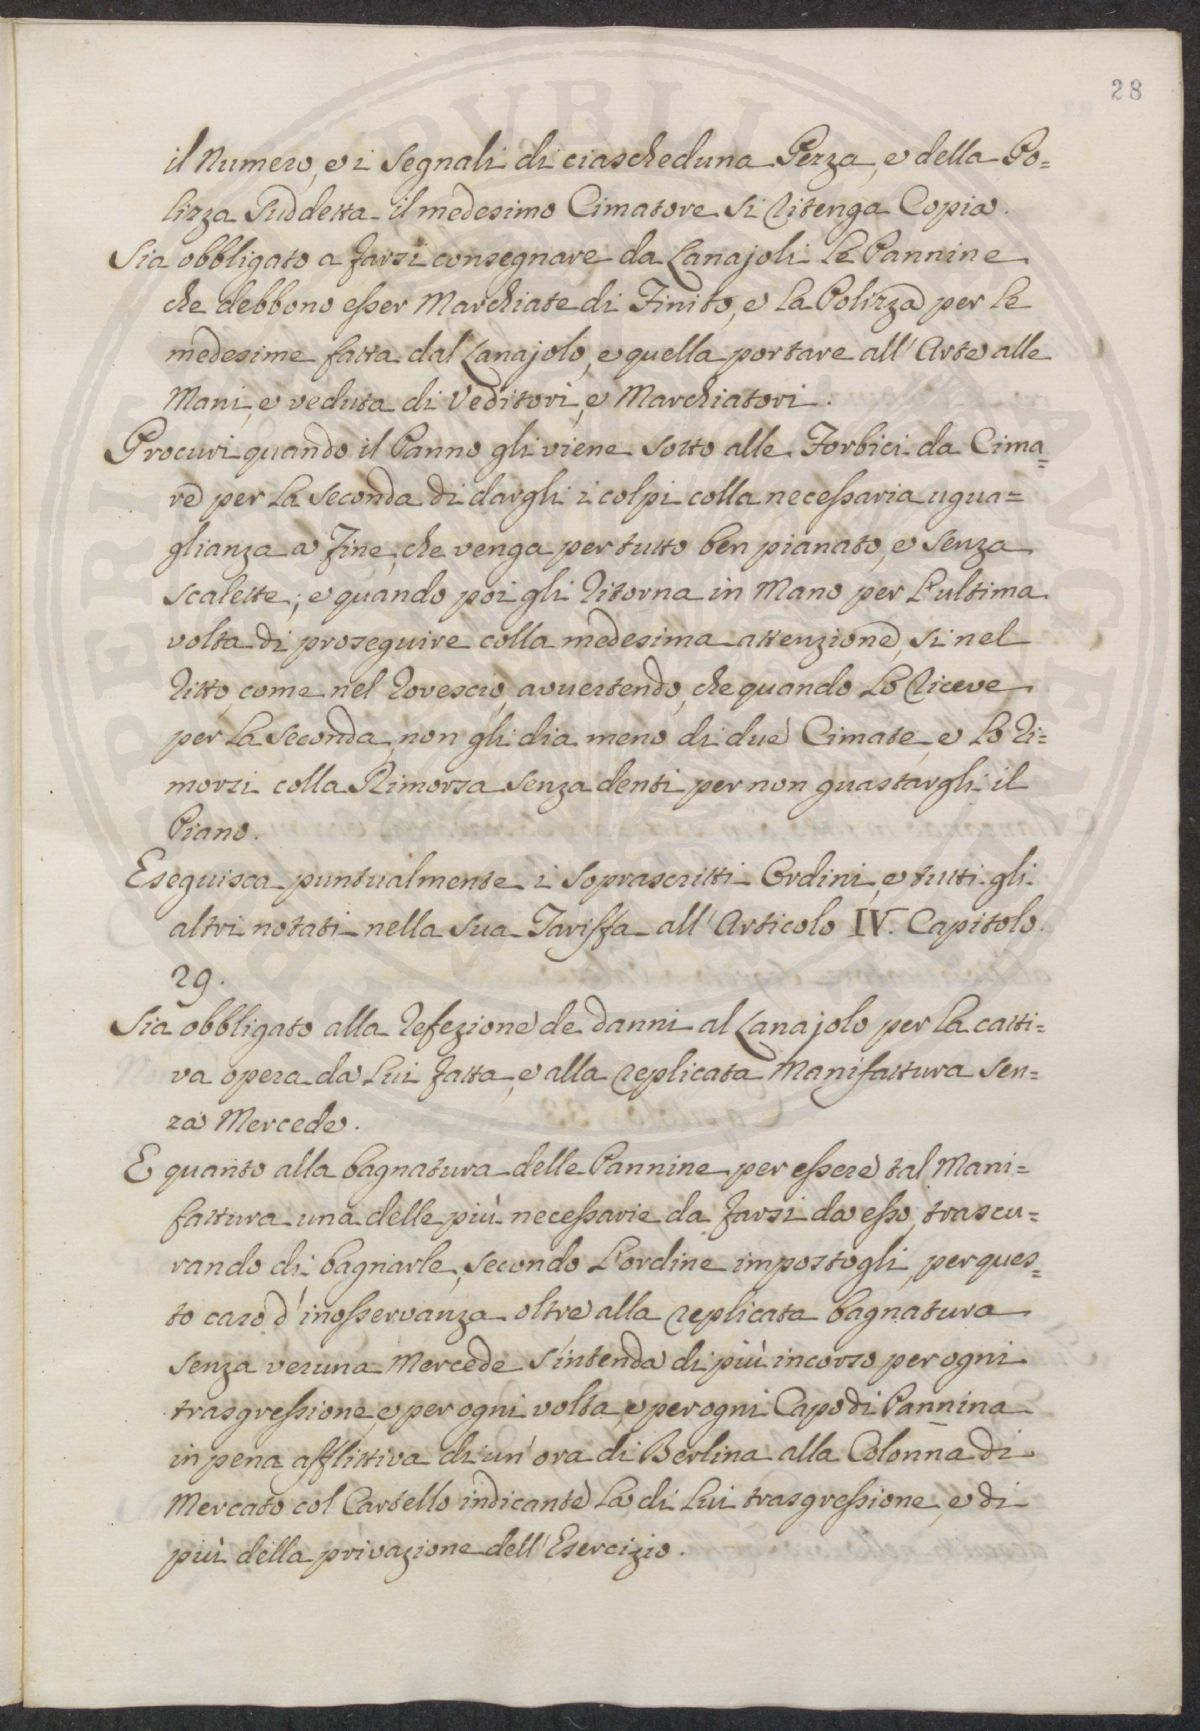 28
il Numero, e i segnali di ciascheduna Pezza, e della Po=
lizza Suddetta il medesimo Cimatore si ritenga Copia.
Sia obbligato a farsi consegnare da Lanajoli le Pannine
che debbono esser Marchiate di Finito, e la Polizza per le
medesime fatta dal Lanajolo, e quella portare all'Arte alle
Mani, e veduta di Veditori, e Marchiatori.
Procuri quando il Panno gli viene sotto alle Forbici da Cima=
re per la seconda di dargli i colpi colla necessaria ugua=
glianza a fine, che venga per tutto ben pianato, e senza
scalette; e quando poi gli ritorna in Mano per l'ultima
volta di proseguire colla medesima attenzione, si nel
ritto, come nel rovescio, avvertendo, che quando lo riceve
per la seconda, non gli dia meno di due Cimate, e lo ri=
morzi colla Rimorsa senza denti per non guastargli il
Piano.
Eseguisca puntualmente i soprascritti Ordini, e tutti gli
altri notati nella sua Tariffa all'Articolo IV. Capitolo
29.
Sia obbligato alla refezione de danni al Lanajolo per la catti=
va opera da lui fatta, e alla replicata Manifattura sen=
za Mercede.
E quanto alla bagnatura delle Pannine per essere tal Mani=
fattura una delle più necessarie da farsi da esso, trascu=
rando di bagnarle, secondo l'ordine impostogli, per ques=
to caso d'inosservanza oltre alla replicata bagnatura
senza veruna Mercede s'intenda di più incorso per ogni
trasgressione, e per ogni volta, e per ogni Capo di Pannina
in pena afflittiva di un'ora di Berlina alla Colonna di
Mercato col Cartello indicante la di lui trasgressione, e di
più della privazione dell'Esercizio.